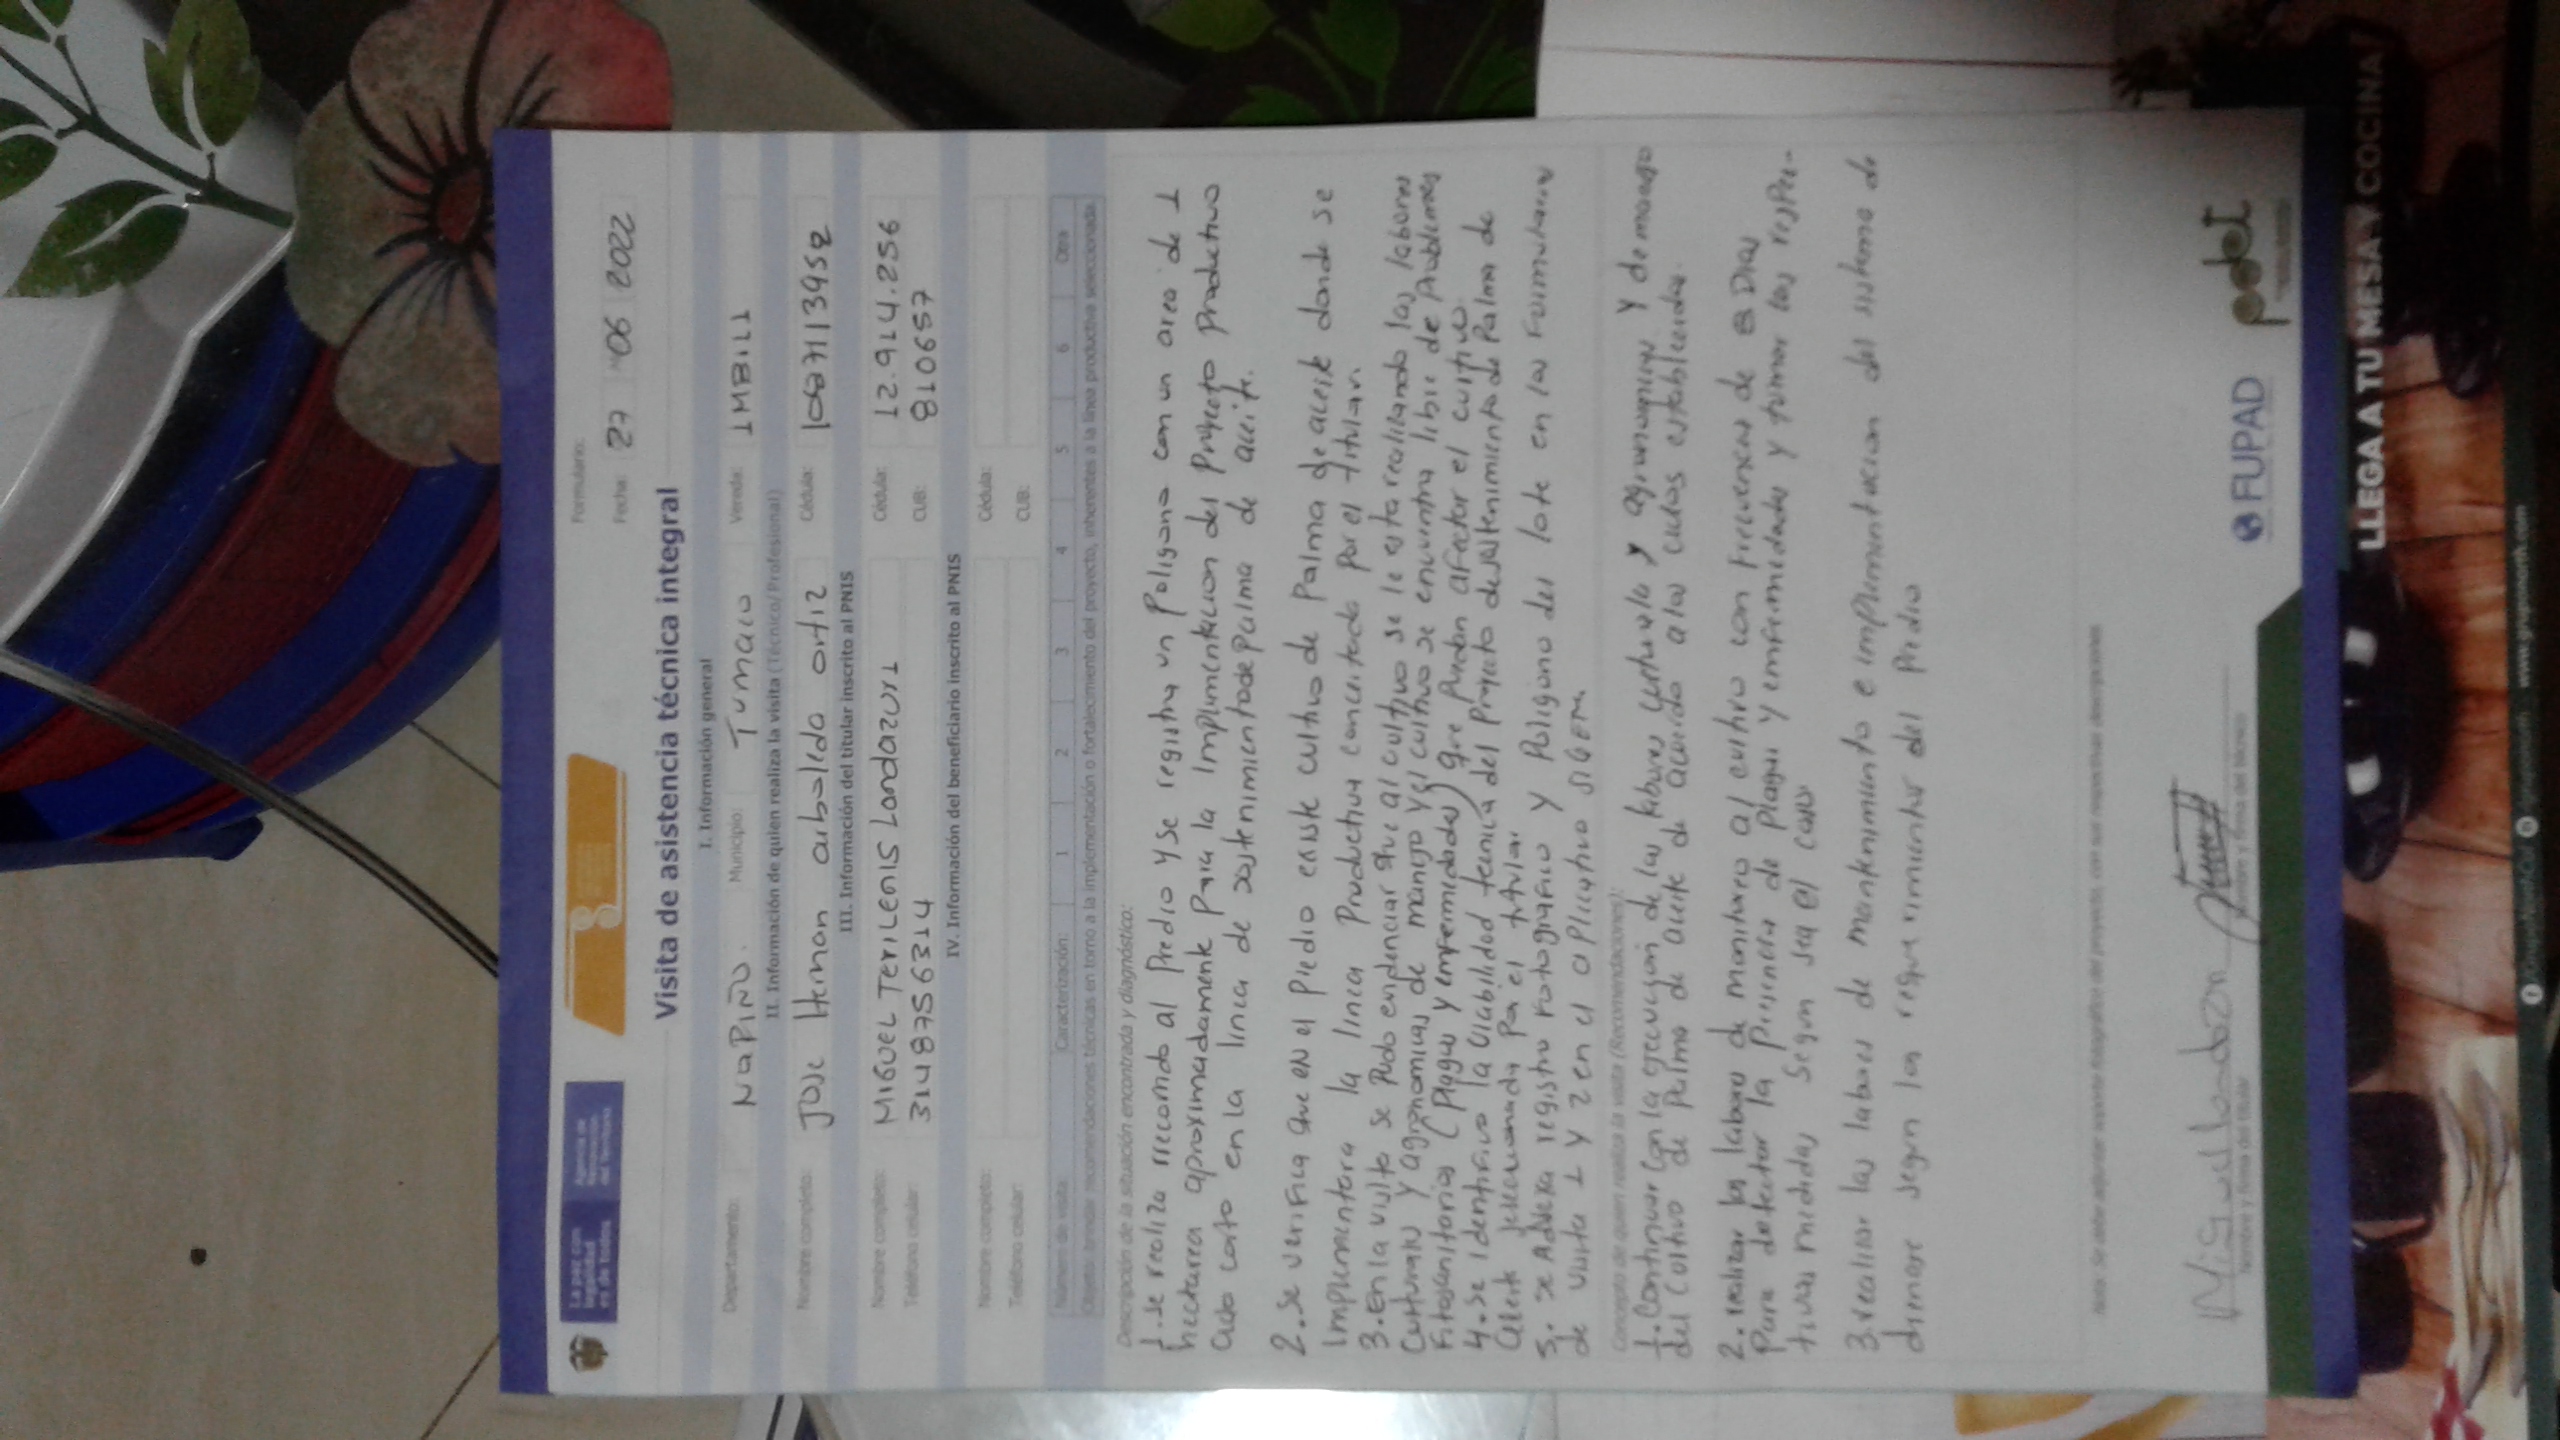 La paz con
legalidad
es de todos
Agencia de
Renovación
del Territorio
Formulario:
Fecha: 27 06 2022
Visita de asistencia técnica integral
I. Información general
Departamento: NaRIÑO. Municipio: Tumaco Vereda: IMBILI
II. Información de quien realiza la visita (Técnico/Profesional)
Nombre completo: Jose Hernan arboleda ortiz Cédula: 1087113952
III. Información del titular inscrito al PNIS
Nombre completo: MIGUEL TERILENIS Londazuri Cédula: 12.914.256
Teléfono celular: 3148756314 CUB: 810657
IV. Información del beneficiario inscrito al PNIS
Nombre completo: Cédula:
Teléfono celular: CUB:
Número de visita: Caracterización: 1 2 3 4 5 6 Otra
Objeto: brindar recomendaciones técnicas en torno a la implementación o fortalecimiento del proyecto, inherentes a la línea productiva seleccionada.
Descripción de la situación encontrada y diagnóstico:
1. Se realiza rrecorrido al Predio y se registra un Poligono con un area de 1
hectarea aproximadamente Para la Implementacion del Proyecto Productivo
Ciclo corto en la linea de sostenimiento de palma de aceite.
2. Se verifica que en el Predio existe cultivo de Palma de aceite donde se
Implementara la linea Productiva concertada por el titular.
3. En la visita se Pudo evidenciar que al cultivo se le esta realizando las labores
Culturales y agronomicas de manejo y el cultivo se encuentra libre de Problemas
Fitosanitarios (Plagas y enfermedades) que Puedan afectar el cultivo.
4. Se identifico la viabilidad tecnica del Proyecto de sostenimiento de Palma de
aceite seleccionada Por el titular
5. se Anexa registro Fotografico y Poligono del lote en los Formularios
de visita 1 y 2 en el aplicativo
Concepto de quien realiza la visita (Recomendaciones):
1. Continuar con la ejecucion de las labores y agronomicas y de manejo
del Cultivo de Palma de aceite de acuerdo a los ciclos establecidos.
2. realizar las labores de monitoreo al cultivo con Frecuencias de 8 Dias
Para detectar la Presencia de Plagas y enfermedades y tomar las respec-
tivas medidas Segun sea el caso
3. realizar las labores de mantenimiento e implementacion del sistema de
drenaje segun los requerimientos del Predio
Nota: Se debe adjuntar soporte fotográfico del proyecto, con sus respectivas descripciones
Miguel londazuri
Nombre y firma del titular
Nombre y firma del técnico
FUPAD
pdet
LLEGA A TU MESA Y COCINA!